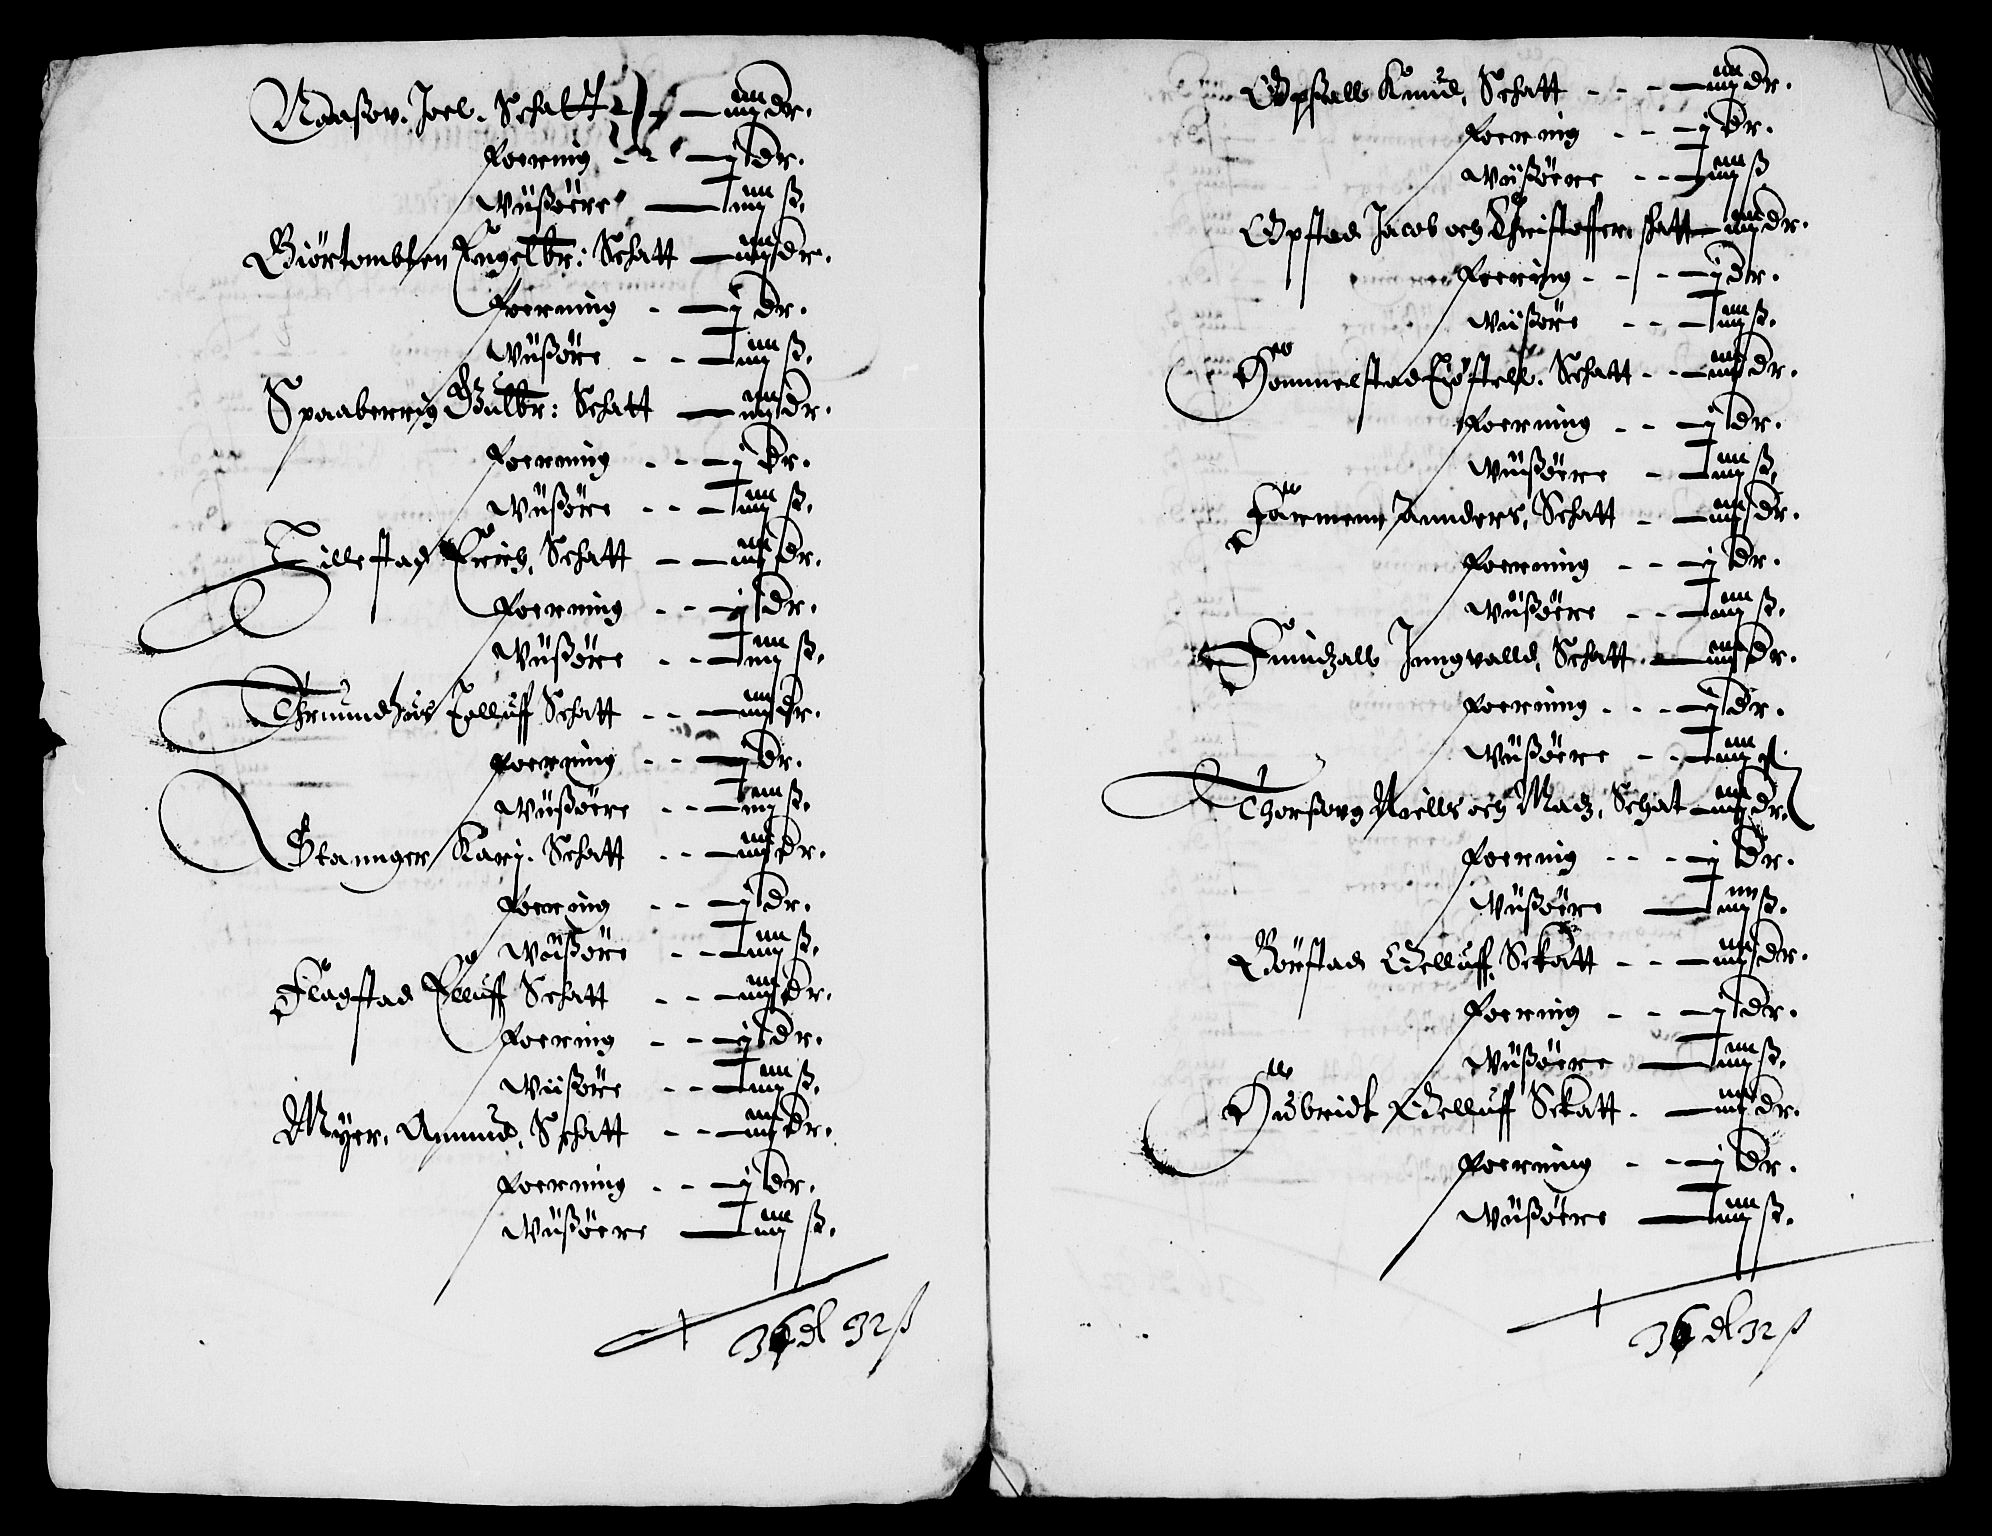 Naaßov. Joel. Schatt - iiij dr.
foerring - - j dr.
Wüßöere — iiij ß.
Biörtombten Engelbr: Schatt — iiij dr.
foerning - j dr.
Wüßöre - - iiij ß.
Spaaberrig Gulbr: Schatt — iiij dr.
foerning - - j dr.
Wüßöre - - iiij ß.
Lillestad Erich, Schatt - - iiij dr.
foerning - - j dr.
Wüßöre - - iiij ß.
Schatt - - iiij dr.
foerning - - j dr.
Wüßöere - - iiij ß.
Stannger Karj. Schatt - - iiij dr.
foerning - - j dr.
Wüßöre - - iiij ß.
Flagstad Elluff Schatt - - iiij dr.
foerning - - j dr.
Wüßöre - - iiij ß.
Myer, Amund, Schatt - - iiij dr.
foerning - - j dr.
Wüßöere — iiij ß.
36 dl 32 ß
Opsall Knud, Schatt - - - iiij dr.
foerning - - j dr.
Wüßöere - - iiij ß
Opstad Jacob och Christoffer, schatt iiij dr.
foerring - - - j dr.
Wüßöre - - iiij ß.
Hommelstad Schatt - - iiij dr.
foerning - - j dr.
Wüßöere - iiij ß.
Farmenn Annders, Schatt - iiij dr.
foerning - - j dr.
Wüßöere - - iiij ß.
Finndzall Inngvalld, Schatt. iiij dr.
foerning - - - j dr.
Wüßöere - - iiij ß.
Thorßorg Niells och Madz, Schat iiij dr.
foerning - - - j dr.
Wüßöere — iiij ß.
Börstad Oelluff, Sckatt - - iiij dr.
foerning - - j dr.
Wüßöere — iiij ß.
Hubridt Oelluff Sckatt. — iiij dr.
foerning - - j dr.
Wüßöere — iiij ß.
36 dl 32 ß